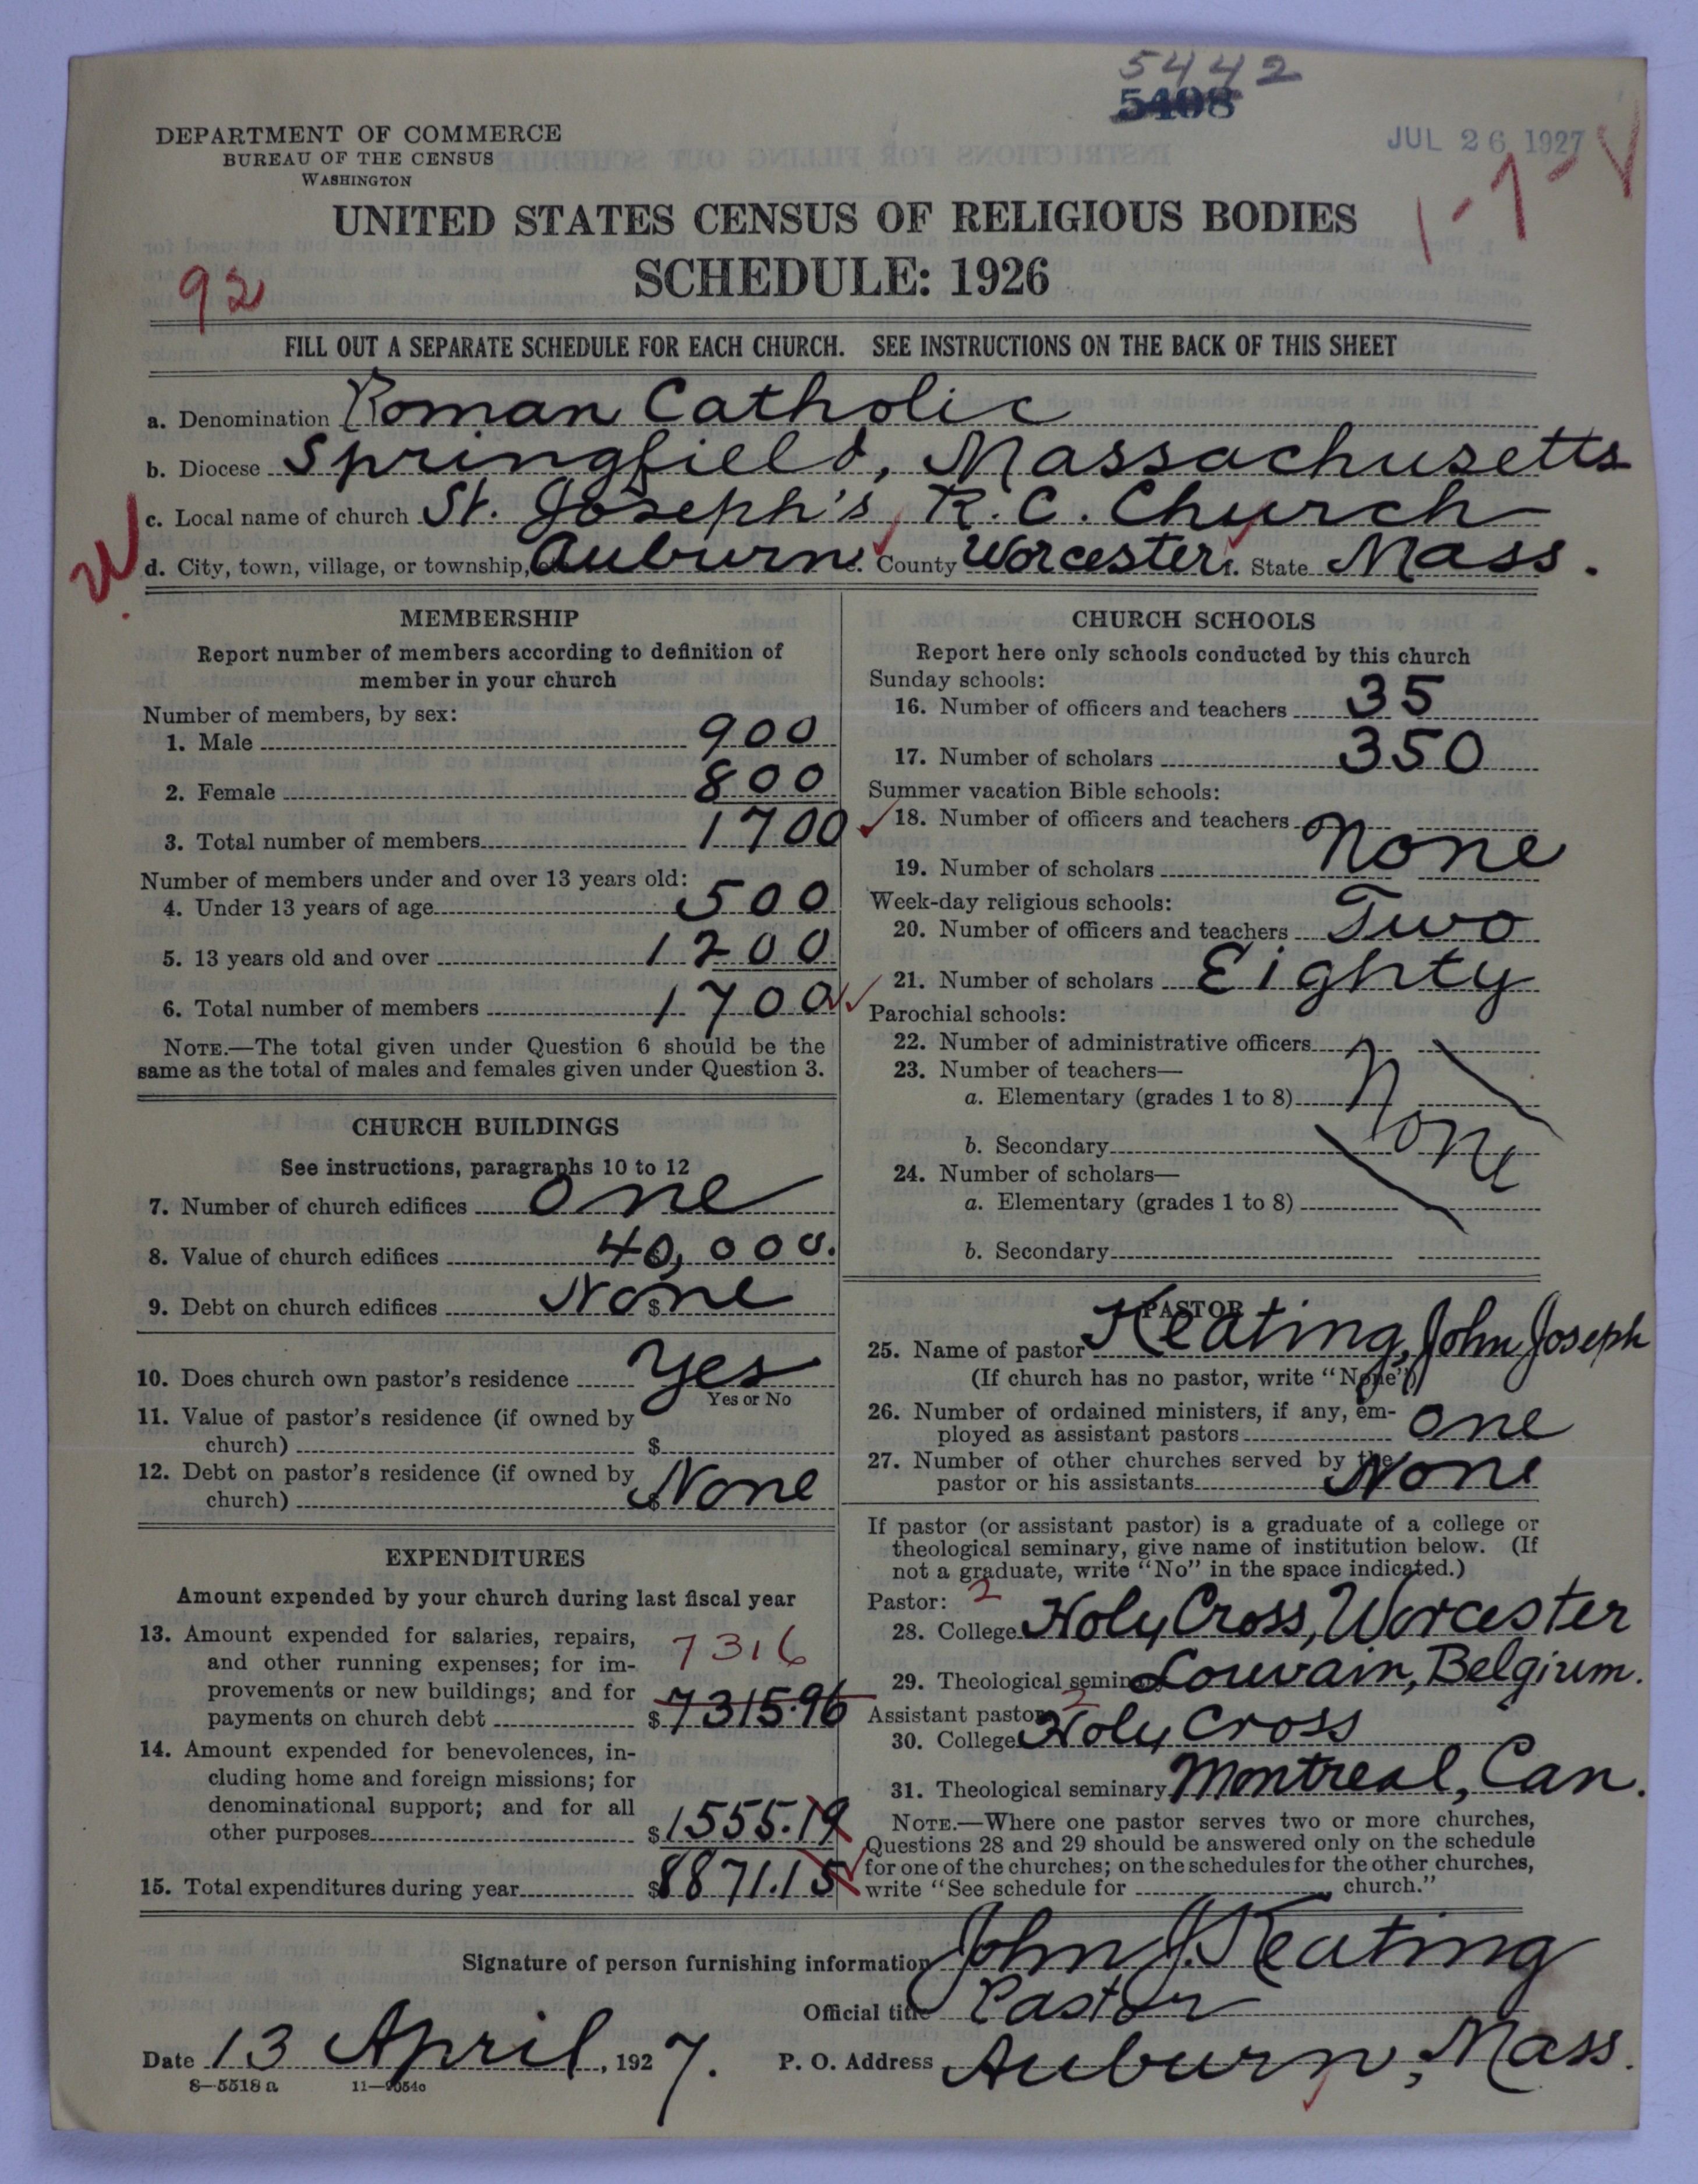 5442
5408
DEPARTMENT OF COMMERCE
BUREAU OF THE CENSUS
WASHINGTON
JUL 26 1927
1-7-
UNITED STATES CENSUS OF RELIGIOUS BODIES
SCHEDULE: 1926
92
FILL OUT A SEPARATE SCHEDULE FOR EACH CHURCH. SEE INSTRUCTIONS ON THE BACK OF THIS SHEET
a. Denomination Roman Catholic
b. Diocese Springfield, Massachusetts
c. Local name of church St. Joseph's R.C. Church
d. City, town, village, or township, Auburn. County Worcester. State Mass.
MEMBERSHIP
Report number of members according to definition of
member in your church
Number of members, by sex:
1. Male 900
2. Female 800
3. Total number of members 1700
Number of members under and over 13 years old:
4. Under 13 years of age 500
5. 13 years old and over 1200
6. Total number of members 1700
NOTE.—The total given under Question 6 should be the
same as the total of males and females given under Question 3.
CHURCH BUILDINGS
See instructions, paragraphs 10 to 12
7. Number of church edifices One
8. Value of church edifices 40,000.
9. Debt on church edifices $ None
10. Does church own pastor's residence Yes
Yes or No
11. Value of pastor's residence (if owned by
church) $
12. Debt on pastor's residence (if owned by
church) $ None
EXPENDITURES
Amount expended by your church during last fiscal year
13. Amount expended for salaries, repairs,
and other running expenses; for im-
provements or new buildings; and for
payments on church debt $ 7315.96
7316
14. Amount expended for benevolences, in-
cluding home and foreign missions; for
denominational support; and for all
other purposes $ 1555.19
15. Total expenditures during year $ 8871.15
CHURCH SCHOOLS
Report here only schools conducted by this church
Sunday schools:
16. Number of officers and teachers 35
17. Number of scholars 350
Summer vacation Bible schools:
18. Number of officers and teachers
None
19. Number of scholars
Week-day religious schools:
20. Number of officers and teachers Two
21. Number of scholars Eighty
Parochial schools:
22. Number of administrative officers
23. Number of teachers—
a. Elementary (grades 1 to 8)
None
b. Secondary
24. Number of scholars—
a. Elementary (grades 1 to 8)
b. Secondary
PASTOR
25. Name of pastor Keating, John Joseph
(If church has no pastor, write "None")
26. Number of ordained ministers, if any, em-
ployed as assistant pastors One
27. Number of other churches served by the
pastor or his assistants None
If pastor (or assistant pastor) is a graduate of a college or
theological seminary, give name of institution below. (If
not a graduate, write "No" in the space indicated.)
Pastor: 2
28. College Holy Cross, Worcester
29. Theological seminary Louvain, Belgium.
Assistant pastor: 2
30. College Holy Cross
31. Theological seminary Montreal, Can.
NOTE.—Where one pastor serves two or more churches,
Questions 28 and 29 should be answered only on the schedule
for one of the churches; on the schedules for the other churches,
write "See schedule for church."
Signature of person furnishing information John J. Keating
Official title Pastor
Date 13 April, 1927. P. O. Address Auburn, Mass.
8—5518 a 11—9054c